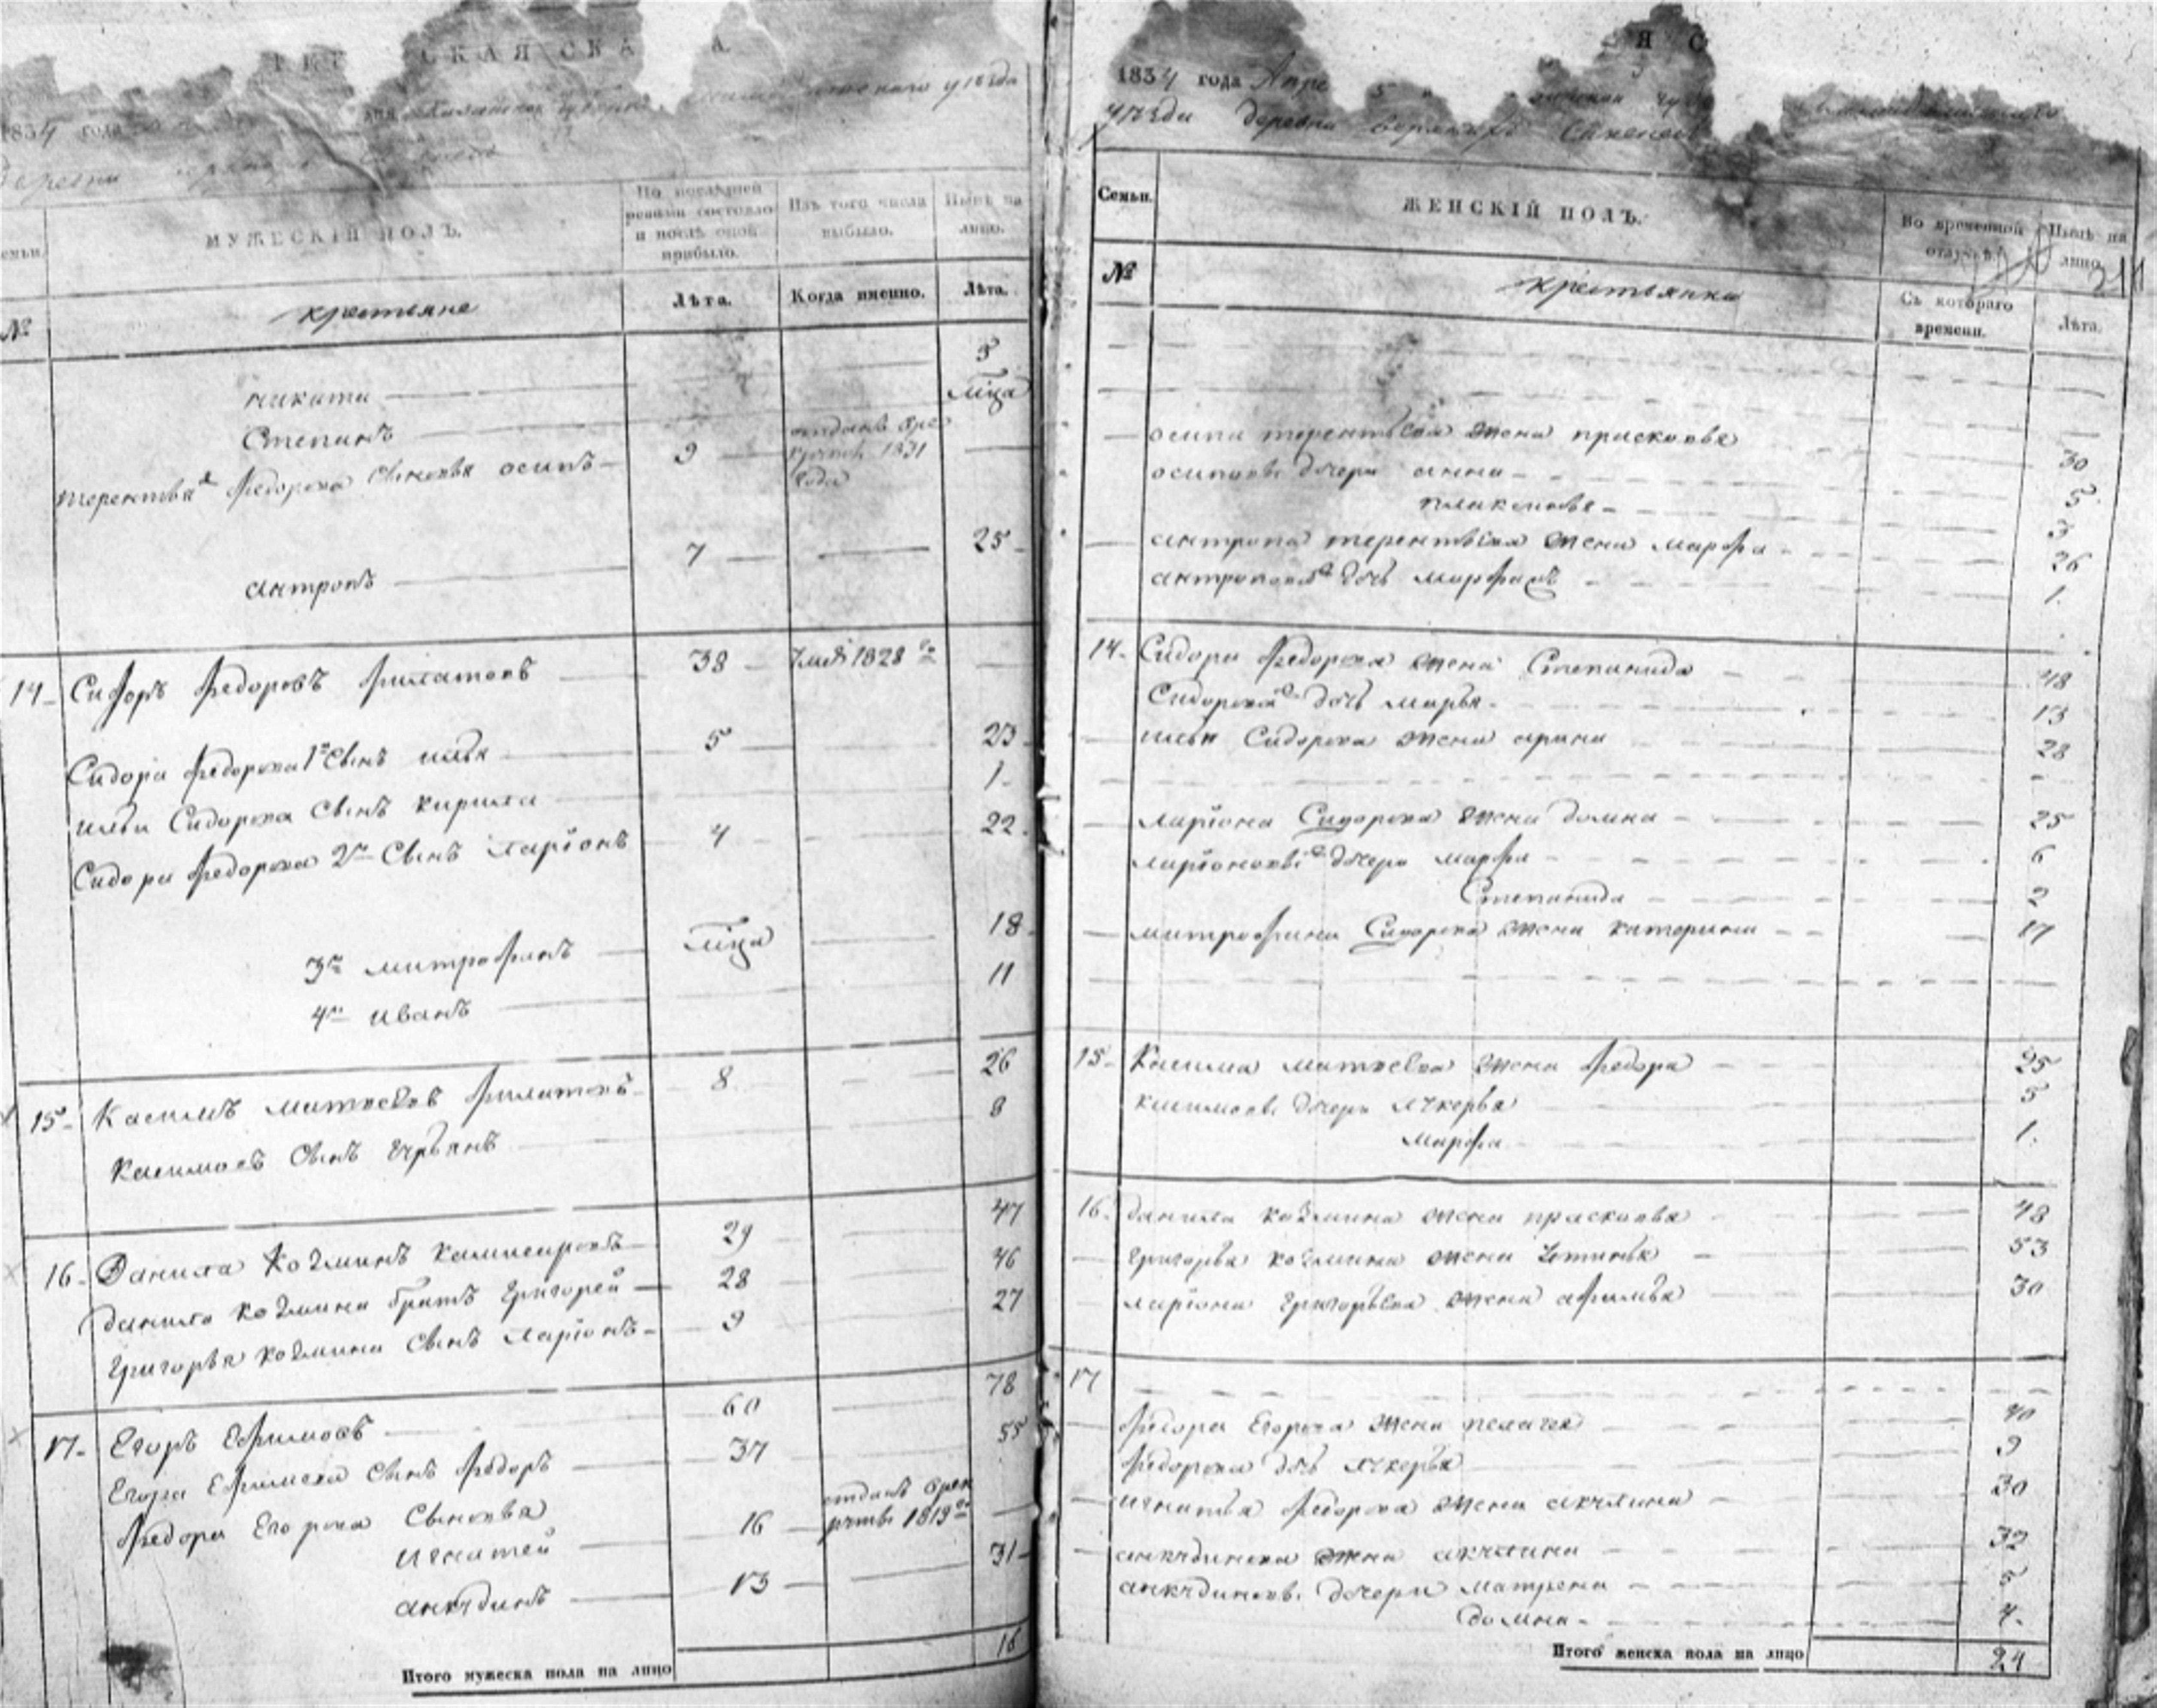 РЕ СКАЯ СКА А.
1834 года
уезда
деревни
Семьи.
МУЖЕСКІЙ ПОЛЪ.
По послѣдней ревизіи состояло и послѣ оной прибыло.
Изъ того числа выбыло.
Нынѣ на лицо.
№
крестьяне
Лѣта.
Когда именно.
Лѣта.
никита 3
Степанъ мѣца
Терентья Федорова сыновья осипъ 9 отданъ в рекруты 1831 года
антропъ 7 25
14 Сидоръ Федоровъ Филатовъ 38 умеръ 1828 го
Сидора Федорова 1й сынъ илья 5 23
ильи Сидорова сынъ кирила 1
Сидора Федорова 2й сынъ ларіонъ 4 22
3й митрофанъ мѣца 18
4й иванъ 11
15 Касимъ матвеевъ филатовъ 8 26
касимовъ сынъ 8
16 Данила козминъ 29 47
данила козмина братъ григорей 28 46
григорья козмина сынъ ларіонъ 9 27
17 Егоръ Ефимовъ 60 78
Егора Ефимова сынъ федоръ 37 55
федора Егорова сыновья
игнатей 16 отданъ в рекруты 1819 го
анкудинъ 13 31
Итого мужеска пола на лицо 16
Я С
1834 года Апре
уезда деревни
Семьи.
ЖЕНСКІЙ ПОЛЪ.
Во временной отлучкѣ.
Нынѣ на лицо.
211
№
крестьянки
Съ котораго времени.
Лѣта.
осипа терентьева жена прасковья 30
осиповы дочери анна 5
3
антропа терентьева жена марфа 26
антропова дочь 1
14 Сидора федорова жена Степанида 48
Сидорова дочь марья 13
ильи Сидорова жена арина 28
ларіона Сидорова жена домна 25
ларіоновы дочери марфа 6
Степанида 2
митрофана Сидорова жена катерина 17
15 Касима матвеева жена федора 25
касимовы дочери лукерья 5
марфа 1
16 данила козмина жена прасковья 48
григорья козмина жена устинья 53
ларіона григорьева жена афимья 30
17
федора Егорова жена пелагея 40
федорова дочь лукерья 9
игнатья федорова жена акулина 30
анкудинова жена акулина 32
анкудиновы дочери матрена 5
домна 4
Итого женска пола на лицо 24